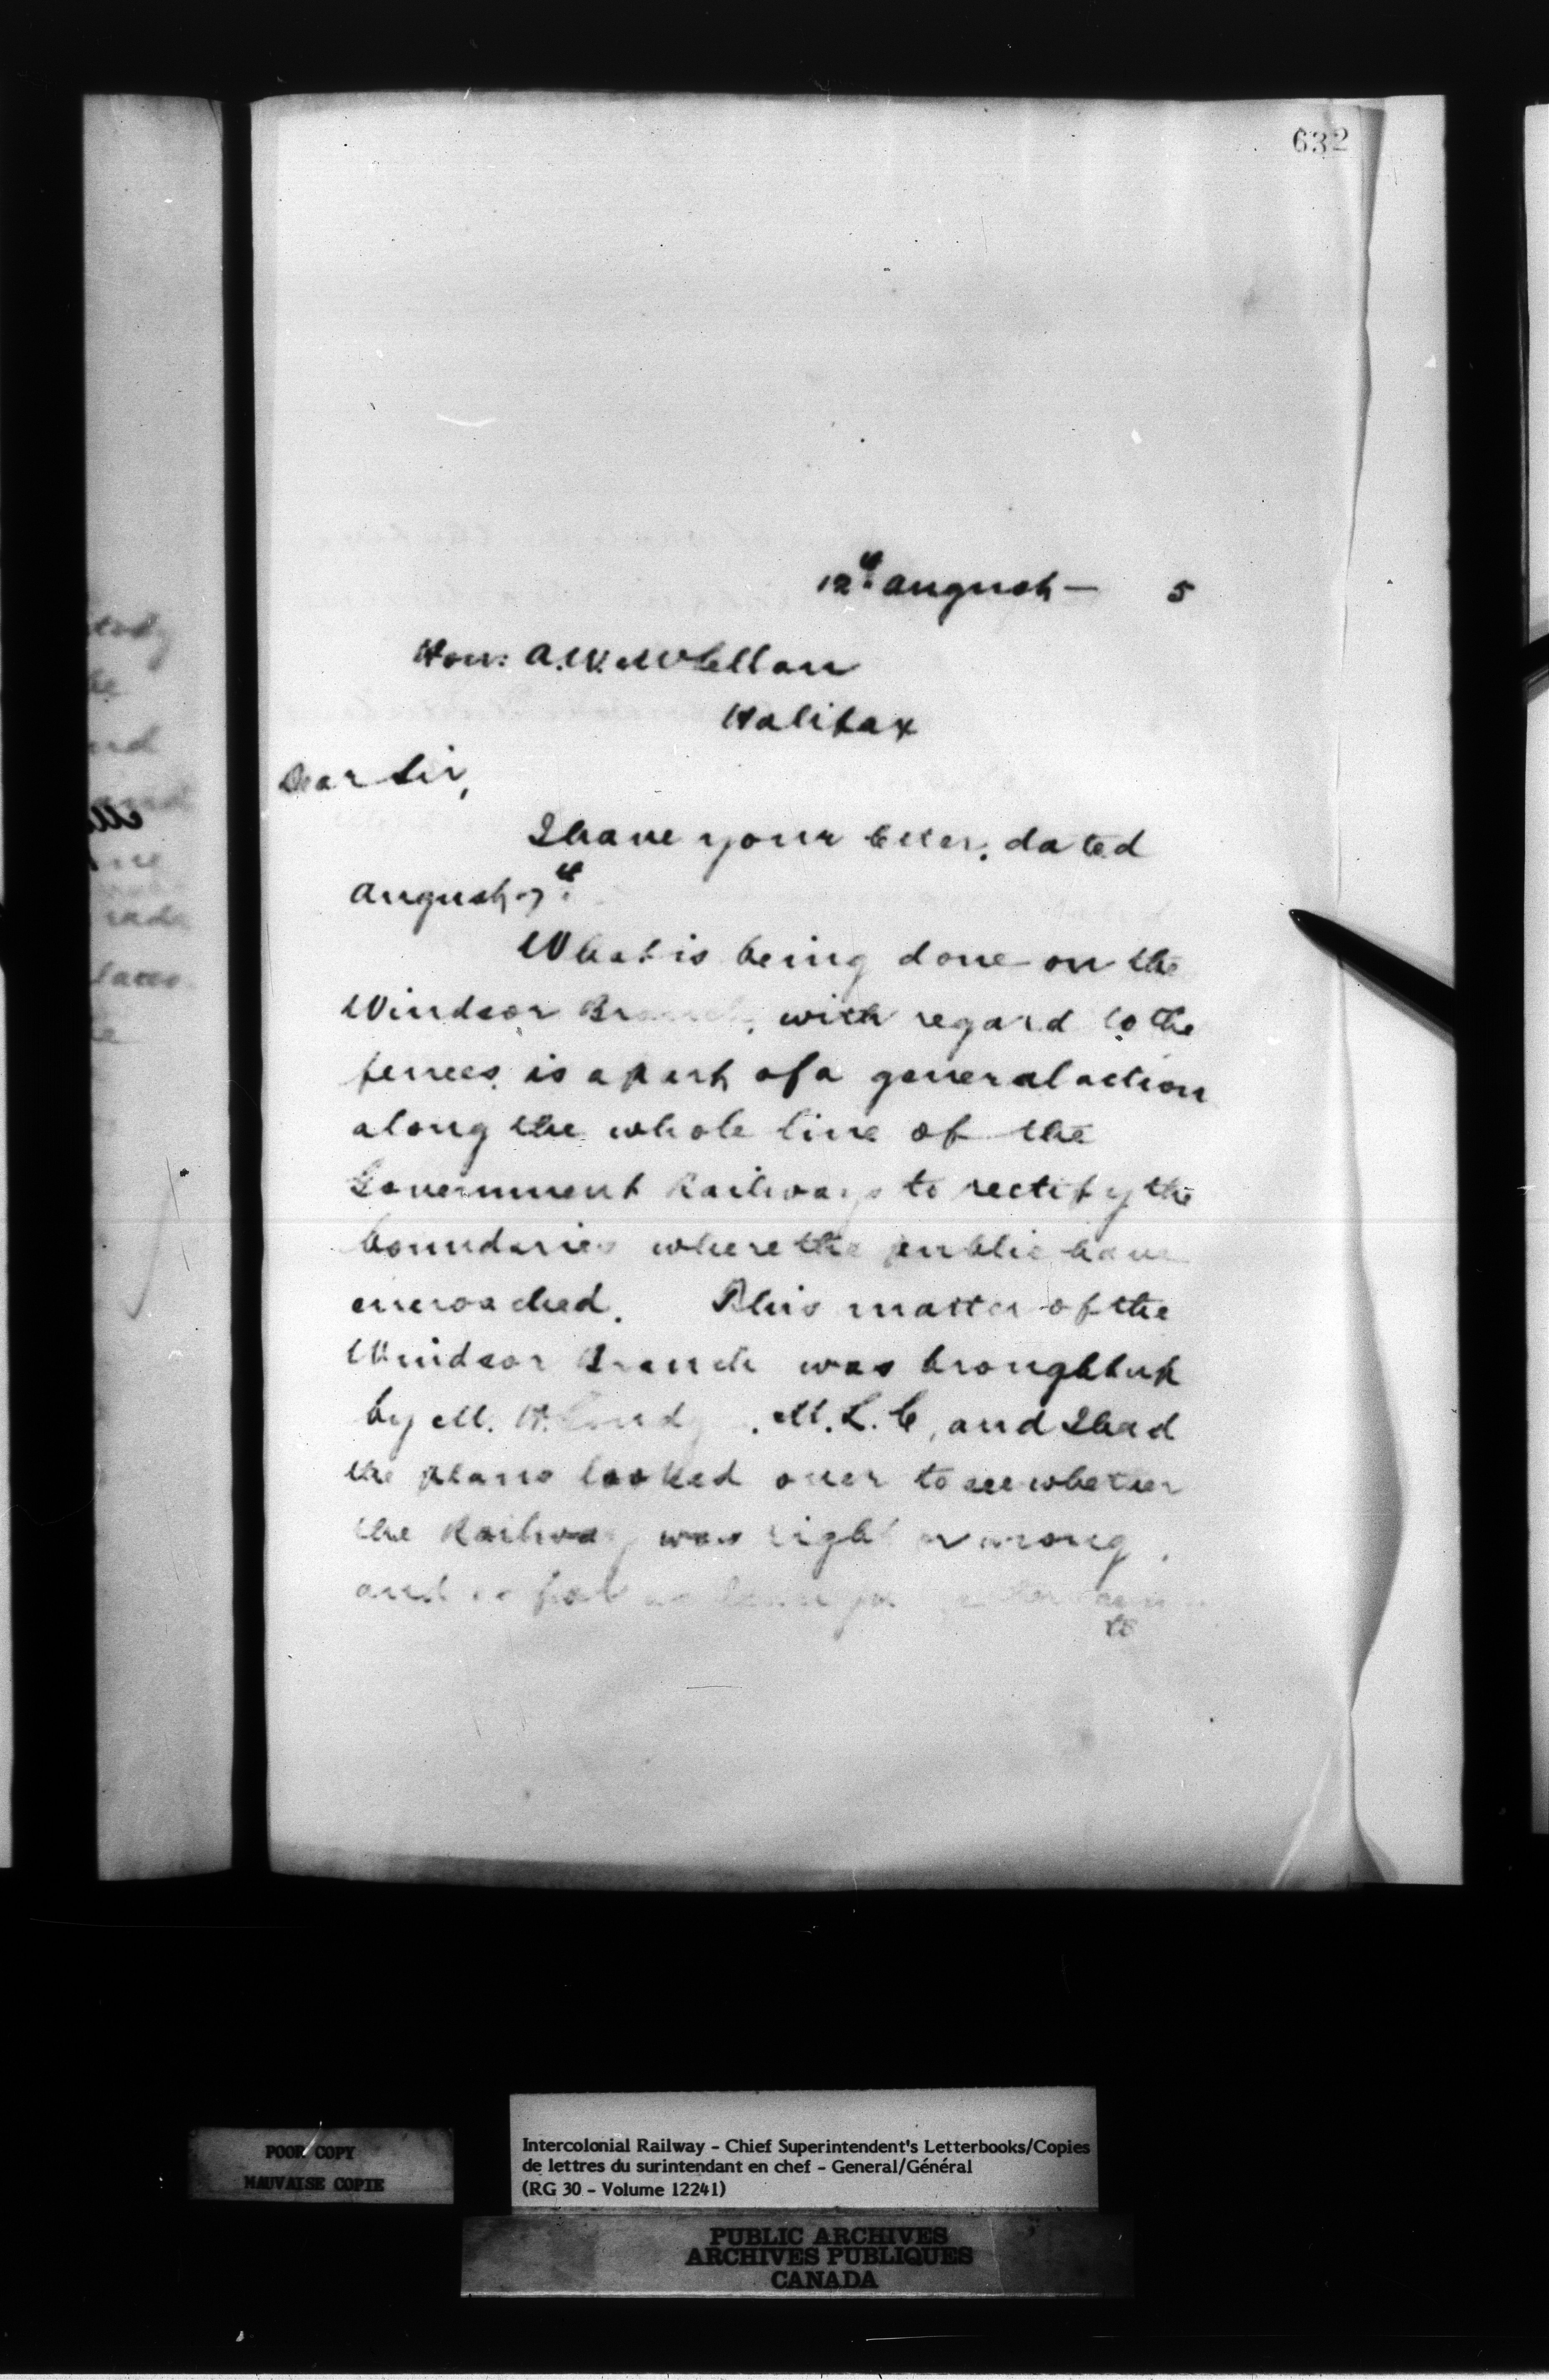 632
12th August — 5
Hon: A.W. McLellan
Halifax
Dear Sir,
I have your letter, dated
August 7th.
What is being done on the
Windsor Branch, with regard to the
fences, is a part of a general action
along the whole line of the
Government Railways to rectify the
boundaries where the public have
encroached. This matter of the
Windsor Branch was brought up
by M. H. M.L.C, and I had
the plans looked over to see whether
the Railway was right or wrong,
and
POOR COPY
MAUVAISE COPIE
Intercolonial Railway - Chief Superintendent's Letterbooks/Copies
de lettres du surintendant en chef - General/Général
(RG 30 - Volume 12241)
PUBLIC ARCHIVES
ARCHIVES PUBLIQUES
CANADA